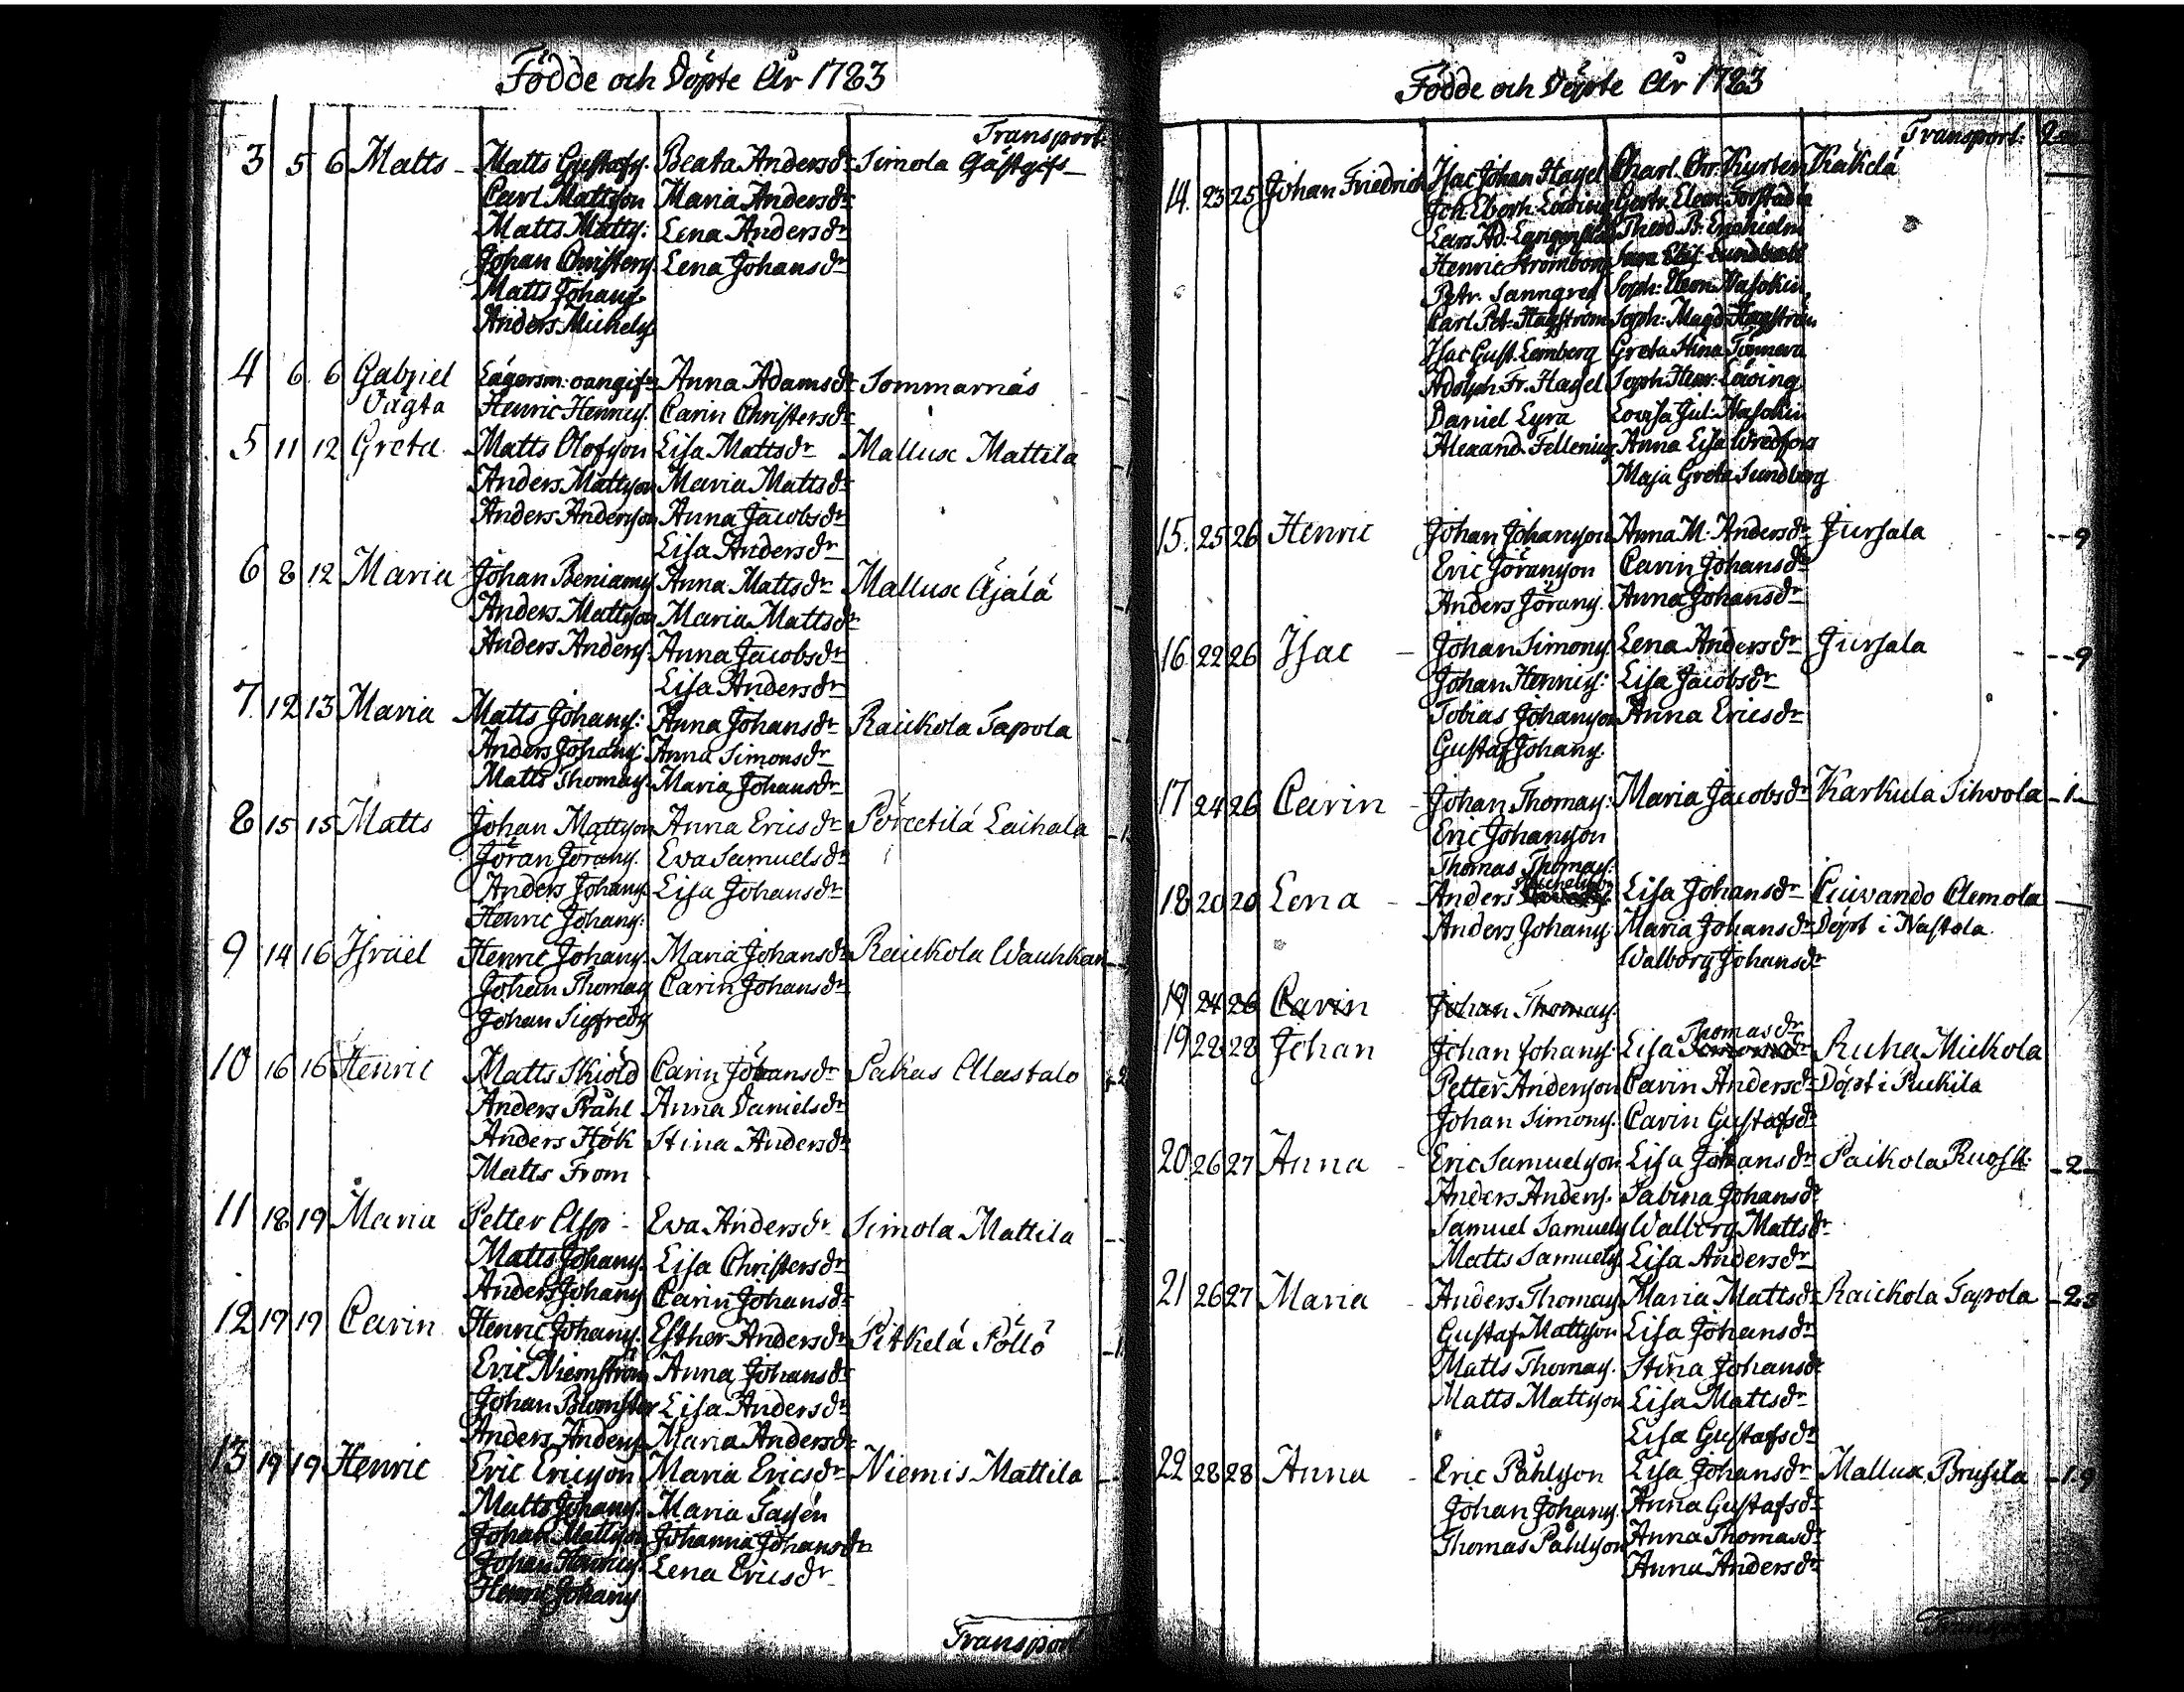 Födde och Döpte År 1783
Transport:
3 5 6 Matts - Matts Gustafs: Beata Andersdr Simola Gästgifs
Carl Mattson Maria Andersdr
Matts Matts: Lena Andersdr
Johan Christers: Lena Johansdr
Matts Johans:
Anders Michels:
4 6 6 Gabriel Lägersm: oangifn Anna Adamsdr Sommarnäs
Oägta Henric Henrics: Carin Christersdr
5 11 12 Greta Matts Olofson Lisa Mattsdr Mallusc Mattila
Anders Mattson Maria Mattsdr
Anders Anderson Anna Jacobsdr
Lisa Andersdr
6 8 12 Maria Johan Beniams: Anna Mattsdr Mallusc Äjälä
Anders Mattson Maria Mattsdr
Anders Anders: Anna Jacobsdr
Lisa Andersdr
7 12 13 Maria Matts Johans: Anna Johansdr Raickola Tapola
Anders Johans: Anna Simonsdr
Matts Thomas: Maria Johansdr
8 15 15 Matts Johan Mattson Anna Ericsdr Perettilä Laihala -1
Jöran Jörans: Eva Samuelsdr
Anders Johans: Lisa Johansdr
Henric Johans:
9 14 16 Israel Henric Johans: Maria Johansdr Raickola Wauhkan
Johan Thomas: Carin Johansdr
Johan Sigfreds:
10 16 16 Henric Matts Skiöld Carin Johansdr Sakas Alastalo
Anders Påhl Anna Danielsdr
Anders Hök Stina Andersdr
Matts From
11 18 19 Maria Petter Asp - Eva Andersdr Simola Mattila
Matts Johans: Lisa Christersdr
Anders Johans: Carin Johansdr
12 19 19 Carin Henric Johans: Esther Andersdr Pitkelä Pöllö
Eric Niemström Anna Johansdr
Johan Blomster Lisa Andersdr
Anders Anders: Maria Andersdr
13 19 19 Henric Eric Ericson Maria Ericsdr Niemis Mattila
Matts Johans: Maria Jasén
Johan Mattson Johanna Johansdr
Johan Henrics: Lena Ericsdr
Henric Johans:
Transport
Födde och Döpte År 1783
Transport:
14 23 25 Johan Friedrich Isac Johan Hagel Charl. Chr. Kyrten Käkelä
Joh. Eberh. Löving Gertr. Eleon. Forstadia
Lars Ad. Theod. B. Enehielm
Henric Strömborg Sara Elis. Lundvall
Petr. Sanngren Soph: Eleon. Hasokin
Carl Pet: Hagström Soph: Magd. Hagström
Isac Gust. Lemberg Greta Stina
Adolph Fr. Hagel Soph. Henr. Löving
Daniel Lyra Lovisa Jul: Hasokin
Alexand. Fellenius Anna Lisa Wredfors
Maja Greta Sundberg
15 25 26 Henric Johan Johanson Anna M: Andersdr Jursala --9
Eric Jöranson Carin Johansdr
Anders Jörans: Anna Johansdr
16 22 26 Isac - Johan Simons: Lena Andersdr Jursala --9
Johan Henrics: Lisa Jacobsdr
Tobias Johanson Anna Ericsdr
Gustaf Johans:
17 24 26 Carin - Johan Thomas: Maria Jacobsdr Karkula Sihvola -1-
Eric Johanson
Thomas Thomas:
18 20 20 Lena - Anders Michelson Lisa Johansdr Cuivando Alemola
Anders Johans: Maria Johansdr Döpt i Nastola
Walborg Johansdr
19 24 26 Carin Johan Thomas:
Thomasdr
19 28 28 Johan Johan Johans: Lisa Simonsdr Ruha Mickola
Petter Anderson Carin Andersdr Döpt i Pukila
Johan Simons: Carin Gustafsdr
20 26 27 Anna - Eric Samuelson Lisa Johansdr Paikola Ruosk: -2-
Anders Anders: Sabina Johansdr
Samuel Samuels: Walborg Mattsdr
Matts Samuels: Lisa Andersdr
21 26 27 Maria - Anders Thomas: Maria Mattsdr Raickola Tapola -2.3
Gustaf Mattson Lisa Johansdr
Matts Thomas: Stina Johansdr
Matts Mattson Lisa Mattsdr
Lisa Gustafsdr
22 28 28 Anna - Eric Påhlson Lisa Johansdr Mallusc Brusila -1.9
Johan Johans: Anna Gustafsdr
Thomas Påhlson Anna Thomasdr
Anna Andersdr
Transport